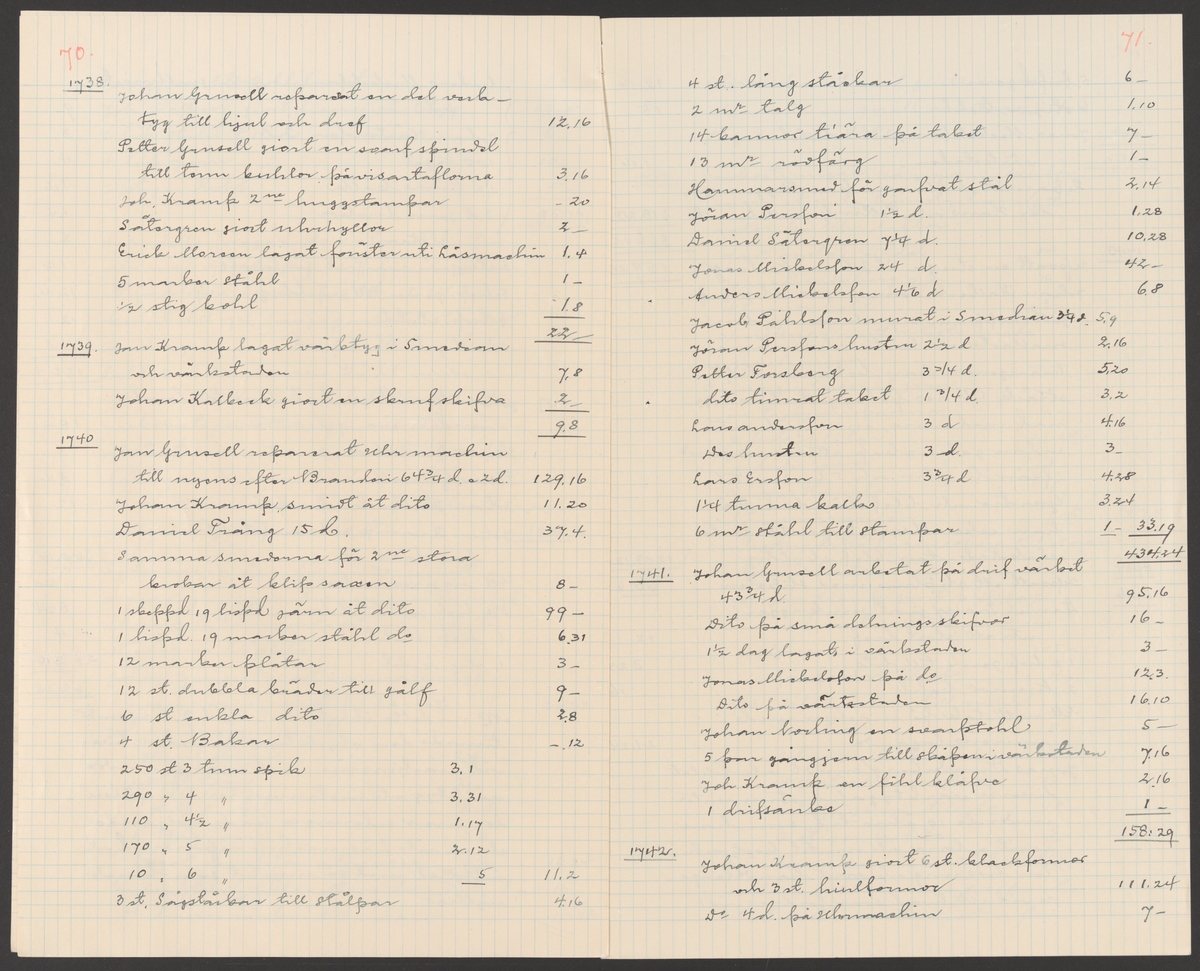 70.
1738.
Johan Grusell reparerat en del verk-
tyg till hjul och dref 12,16
Petter Grusell giort en svarf spindel
till tenn kuhlor på visartaflorna 3.16
Joh. Kramp 2ne huggstampar - 20
Sätergren giort uhrhyllor 2 -
Erick Moreen lagat fönster uti Låsmachin 1.4
5 marker ståhl 1 -
1/2 stig kohl 1.8
22 -
1739. Jan Kramp lagat värktyg i Smedian
och värkstaden 7,8
Johan Kalbeck giort en skrufskifva 2 -
9.8
1740
Jan Grusell reparerat Uhr machin
till nyons efter Branden 64 3/4 d. a 2 d. 129.16
Johan Kramp smidt åt dito 11.20
Daniel Trång 15 d. 37.4.
Samma smederna för 2ne stora
krokar åt klipsaxen 8 -
1 skeppd 19 lispd järn åt dito 99 -
1 lispd. 19 marker ståhl do 6.31
12 marker plåtar 3 -
12 st. dubbla bräder till gålf 9 -
6 st enkla dito 2.8
4 st. Bakar - .12
250 st 3 tum spik 3.1
290 " 4 " 3.31
110 " 4 1/2 " 1.17
170 " 5 " 2.12
10 " 6 " 5 11.2
3 st. Sågståckar till stålpar 4.16
71.
4 st. lång ståckar 6 -
2 mr talg 1.10
14 kannor tiära på taket 7 -
13 mr rödfärg 1 -
Hammarsmed för garfvat stål 2.14
Jöran Persson 1 1/2 d. 1.28
Daniel Sätergren 7 1/4 d. 10.28
Jonas Mickelsson 24 d. 42 -
Anders Mickelsson 4 1/6 d 6.8
Jacob Påhlsson murat i Smedian 3 1/4 d. 5.9
Jöran Perssons hustru 2 1/2 d 2.16
Petter Forsberg 3 3/4 d. 5.20
dito timrat taket 1 3/4 d 3.2
Lars andersson 3 d 4.16
Des hustru 3 d. 3 -
Lars Ersson 3 3/4 d 4.28
1 1/4 tunna kalk 3.24
6 mr ståhl till stampar 1 - 33.19
434.24
1741. Johan Grusell arbetat på drif värket
43 3/4 d 95.16
Dito på små delnings skifvor 16 -
1 1/2 dag lagat i värkstaden 3 -
Jonas Mickelsson på do 12.3.
Dito på värkstaden 16.10
Johan Norling en svarfstohl 5 -
5 par gångjern till skåpen i värkstaden 7.16
Joh Kramp en fihl klåfve 2.16
1 drifsänke 1 -
158:29
1742.
Johan Kramp giort 6 st. klackformor
och 3 st. hiulformor 111.24
Do 4 d. på Uhrmachin 7 -